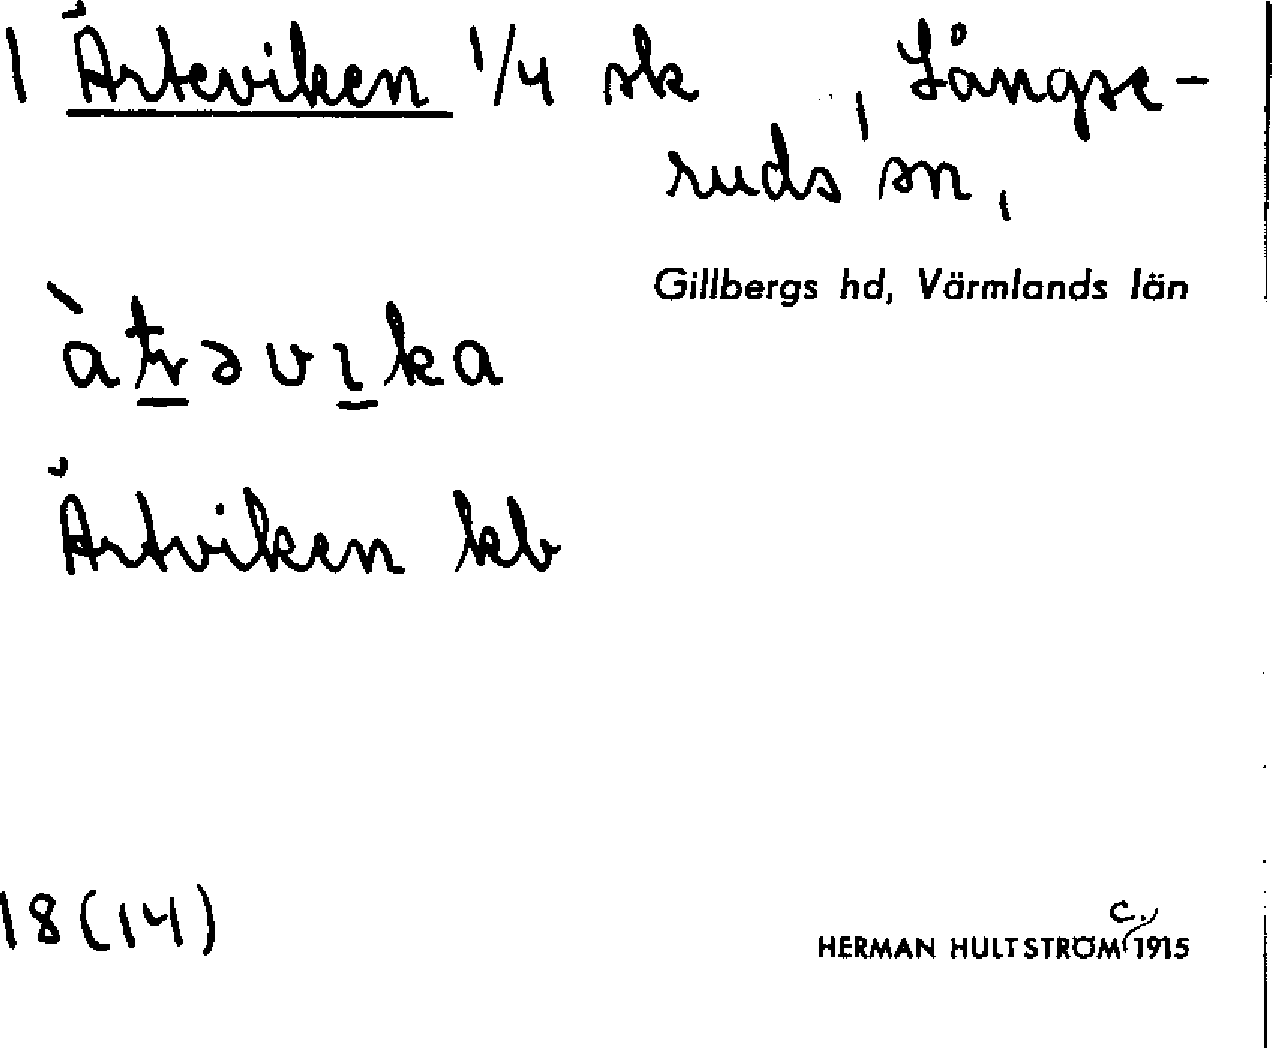 1 Ärteviken 1/4 sk , Långse-
ruds sn,
Gillbergs hd, Värmlands län
Ärtviken kb
18(14)
c.
HERMAN HULTSTRÖM 1915